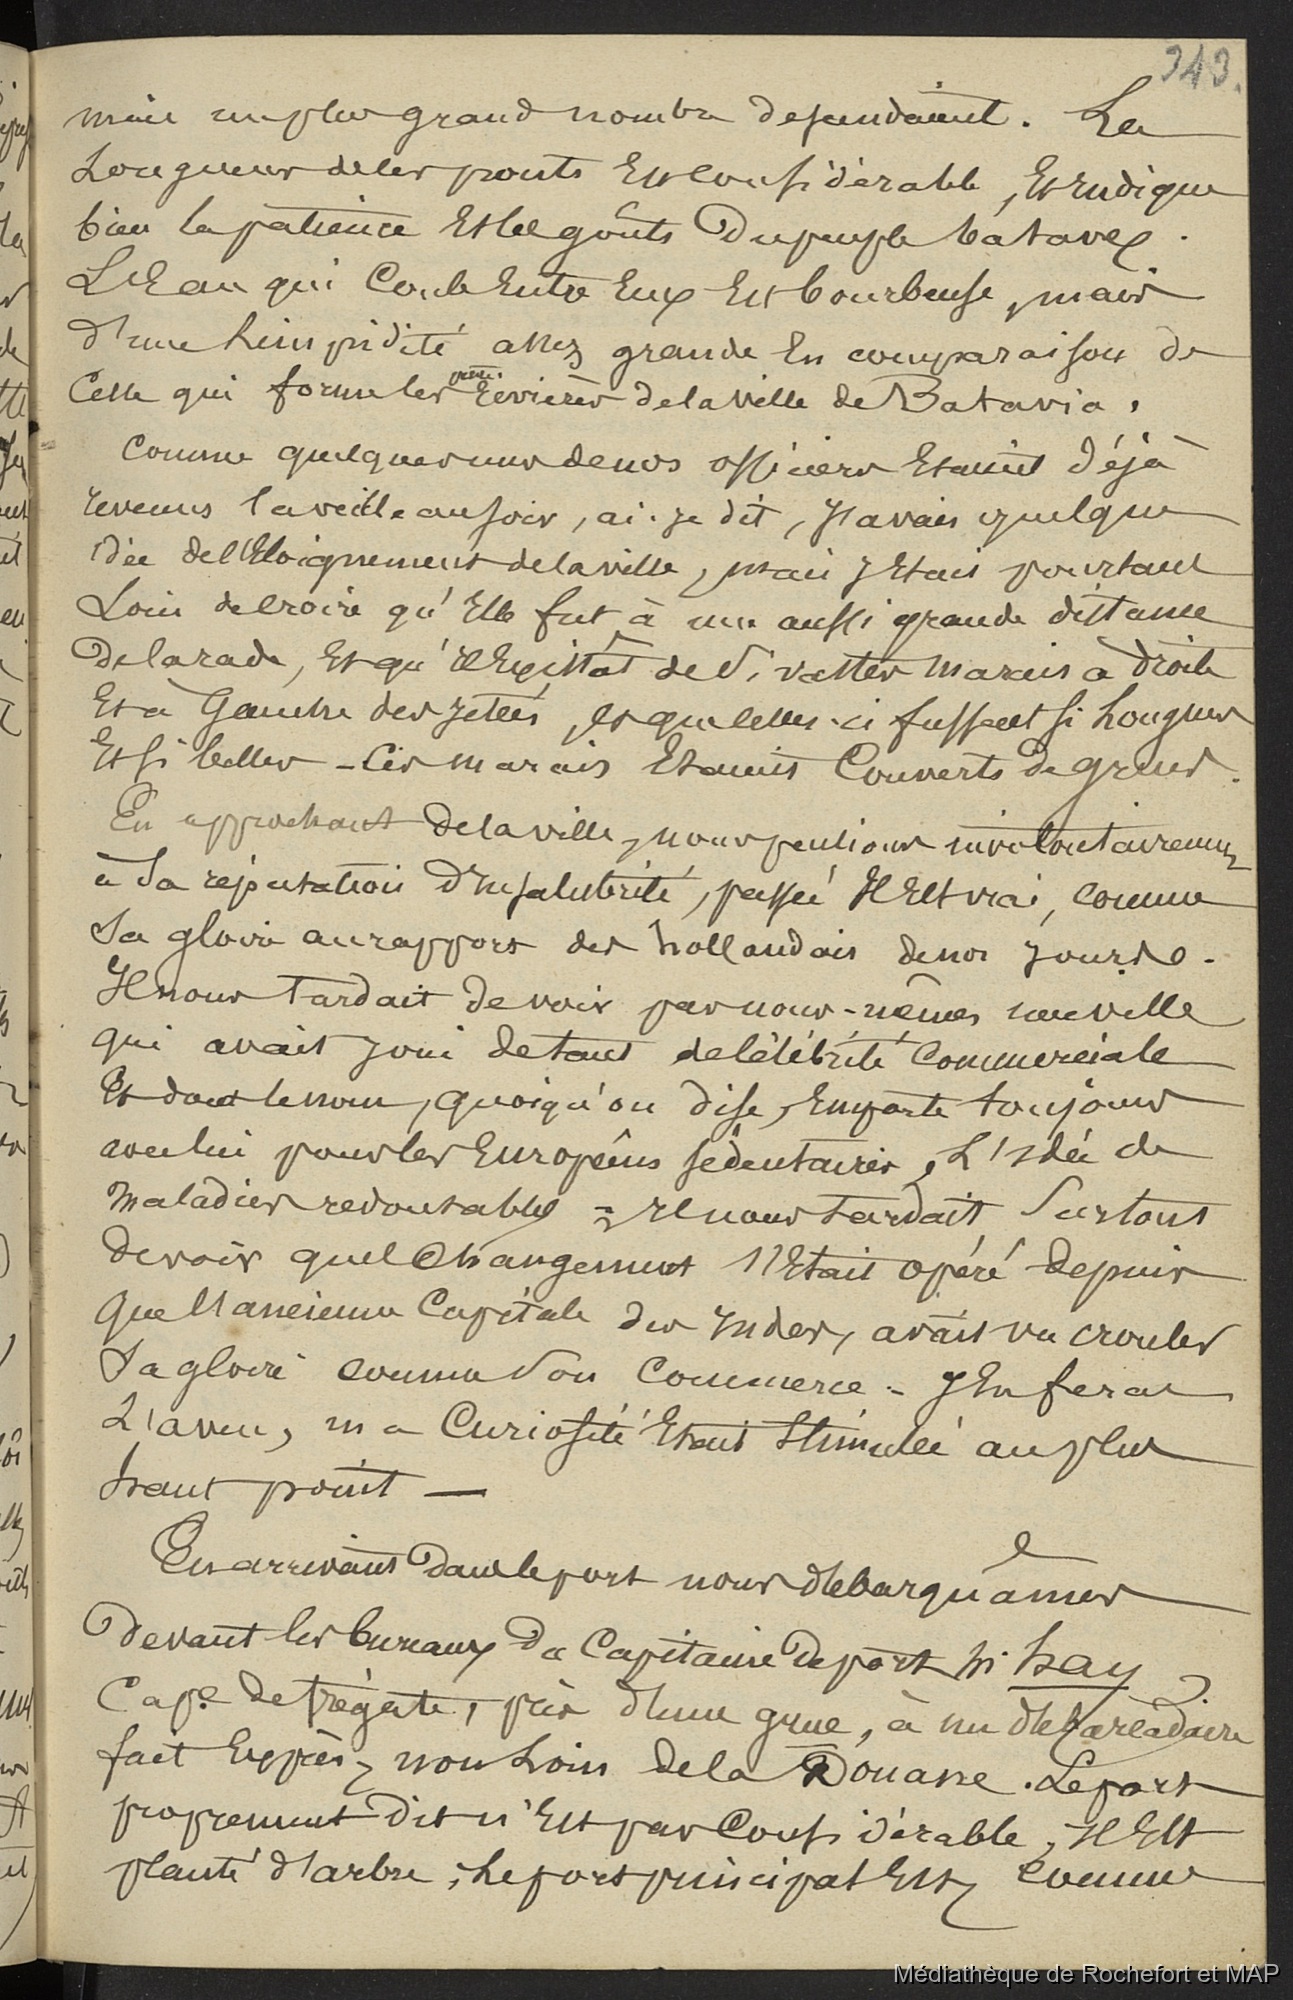 343.
mais un plus grand nombre descendaient. La
Longueur de les ponts Est Considérable, Et Indique
bien la patience Et les goûts Du peuple batave.
L'Eau qui Coule Entre Eux Est bourbeuse, mais
d'une Limpidité assez grande En comparaison de
Celle qui forme les rivières de la Ville de Batavia.
Comme quelques uns de nos officiers Etaient déjà
revenus la veille au soir, ai-je dit, J'avais quelque
idée de l'Eloignement de la ville, mais J'Etais pourtant
Loin de croire qu'Elle fut à une aussi grande distance
De la rade, Et qu'Il Existât de Si vastes Marais à Droite
Et à Gauche des Jetées, Et que celles-ci fussent si Longues
Et si belles - Ces marais Etaient Couverts de grues.
En approchant de la ville, nous pensions involontairement
à Sa réputation D'Insalubrité, passée Il Est vrai, Comme
Sa gloire au rapport des hollandais de nos Jours.
Il nous Tardait De voir par nous-mêmes une ville
qui avait Joui de tant de Célébrité Commerciale
Et dont le nom, quoiqu'on dise, Emporte toujours
avec lui pour les Européens sédentaires, L'Idée de
Maladies redoutables - Il nous tardait Surtout
de voir quel Changement s'Etait opéré depuis
Que l'ancienne Capitale des Indes, avait vu crouler
Sa gloire comme Son Commerce - J'En ferai
L'aveu, ma Curiosité Etait Stimulée au plus
haut point —
En arrivant Dans le port nous débarquâmes
Devant les bureaux Du Capitaine De port Mr hay
Cape. De frégate, près d'une grue, à un débarcadaire
fait Exprès, non Loin de la Douane. Le port
proprement Dit n'Est pas Considérable, Il Est
planté d'arbre; Le port principal Est, Comme
Médiathèque de Rochefort et MAP